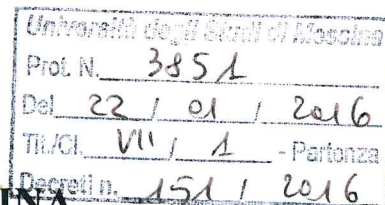 Università degli Studi di Messina
Prot. N. 3851
Del 22 / 01 / 2016
Tit./Cl. VII / 1 - Partenza
Decreti n. 151 / 2016